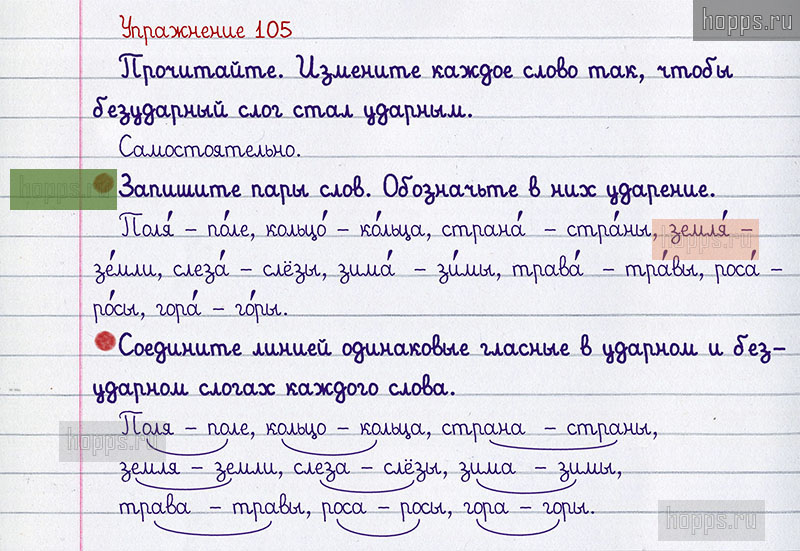 hopps.ru
Упражнение 105
Прочитайте. Измените каждое слово так, чтобы
безударный слог стал ударным.
Самостоятельно.
hopps.ru
Запишите пары слов. Обозначьте в них ударение.
Поля́ – по́ле, кольцо́ – ко́льца, страна́ – стра́ны, земля́ –
hopps.ru
зе́мли, слеза́ – слёзы, зима́ – зи́мы, трава́ – тра́вы, роса́ –
ро́сы, гора́ – го́ры.
Соедините линией одинаковые гласные в ударном и без-
ударном слогах каждого слова.
Поля – поле, кольцо – кольца, страна – страны,
hopps.ru
земля – земли, слеза – слёзы, зима – зимы,
трава – травы, роса – росы, гора – горы.
hopps.ru